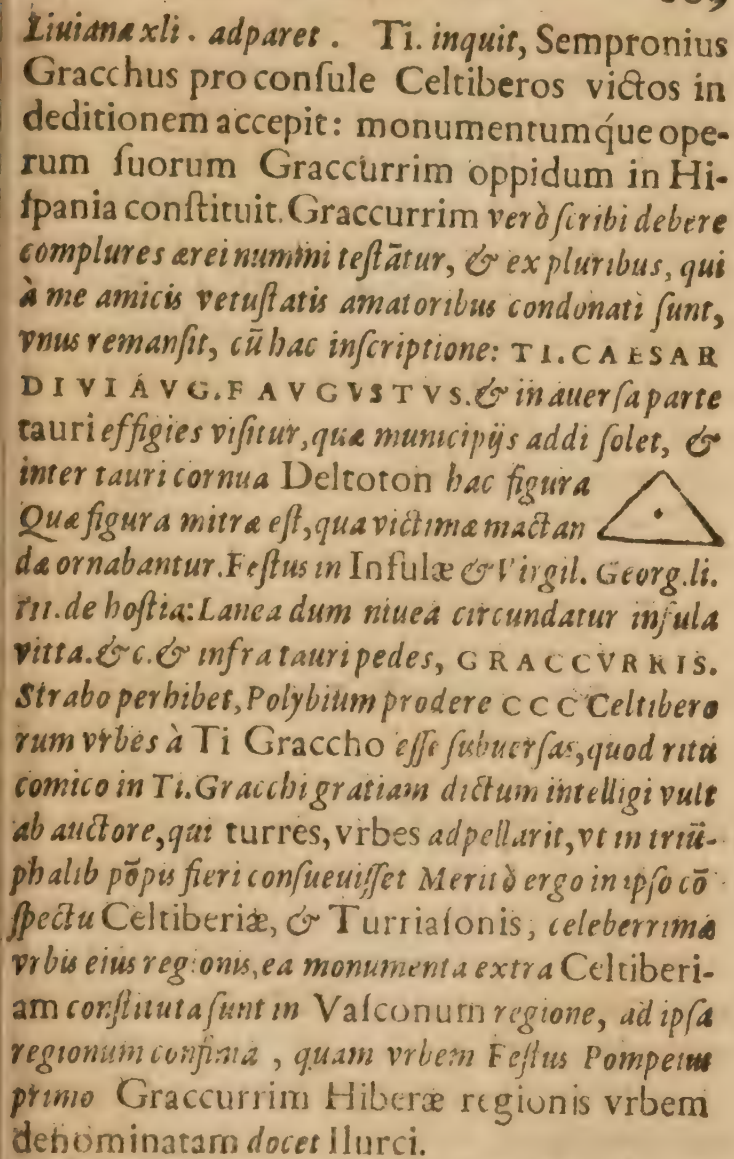 Liuianæ xli. adparet. Ti. inquit, Sempronius
Gracchus pro conſule Celtiberos victos in
deditionem accepit: monumentumq́ue ope-
rum ſuorum Graccurrim oppidum in Hi-
ſpania conſtituit. Graccurrim verò ſcribi debere
complures ærei nummi teſtātur, & ex pluribus, qui
à me amicis vetuſtatis amatoribus condonati ſunt,
vnus remanſit, cū hac inſcriptione: TI. CAESAR
DIVI AVG. F AVGVSTVS. & in auerſa parte
tauri effigies viſitur, quæ municipijs addi ſolet, &
inter tauri cornua Deltoton hac figura
Quæ figura mitræ eſt, qua victimæ mactan
dæ ornabantur. Feſtus in Inſulæ & Virgil. Georg. li.
III. de hoſtia: Lanea dum niuea circundatur inſula
vitta. & c. & infra tauri pedes, GRACCVRRIS.
Strabo perhibet, Polybium prodere CCC Celtibero
rum vrbes à Ti Graccho eſſe ſubuerſas, quod ritu
comico in Ti. Gracchi gratiam dictum intelligi vult
ab auctore, qui turres, vrbes adpellarit, vt in triū-
phalib pōpis fieri conſueuiſſet Meritò ergo in ipſo cō
ſpectu Celtiberiæ, & Turriaſonis, celeberrimæ
vrbis eius regionis, ea monumenta extra Celtiberi-
am conſtituta ſunt in Vaſconum regione, ad ipſa
regionum confinia, quam vrbem Feſtus Pompeius
primo Graccurrim Hiberæ regionis vrbem
denominatam docet Ilurci.